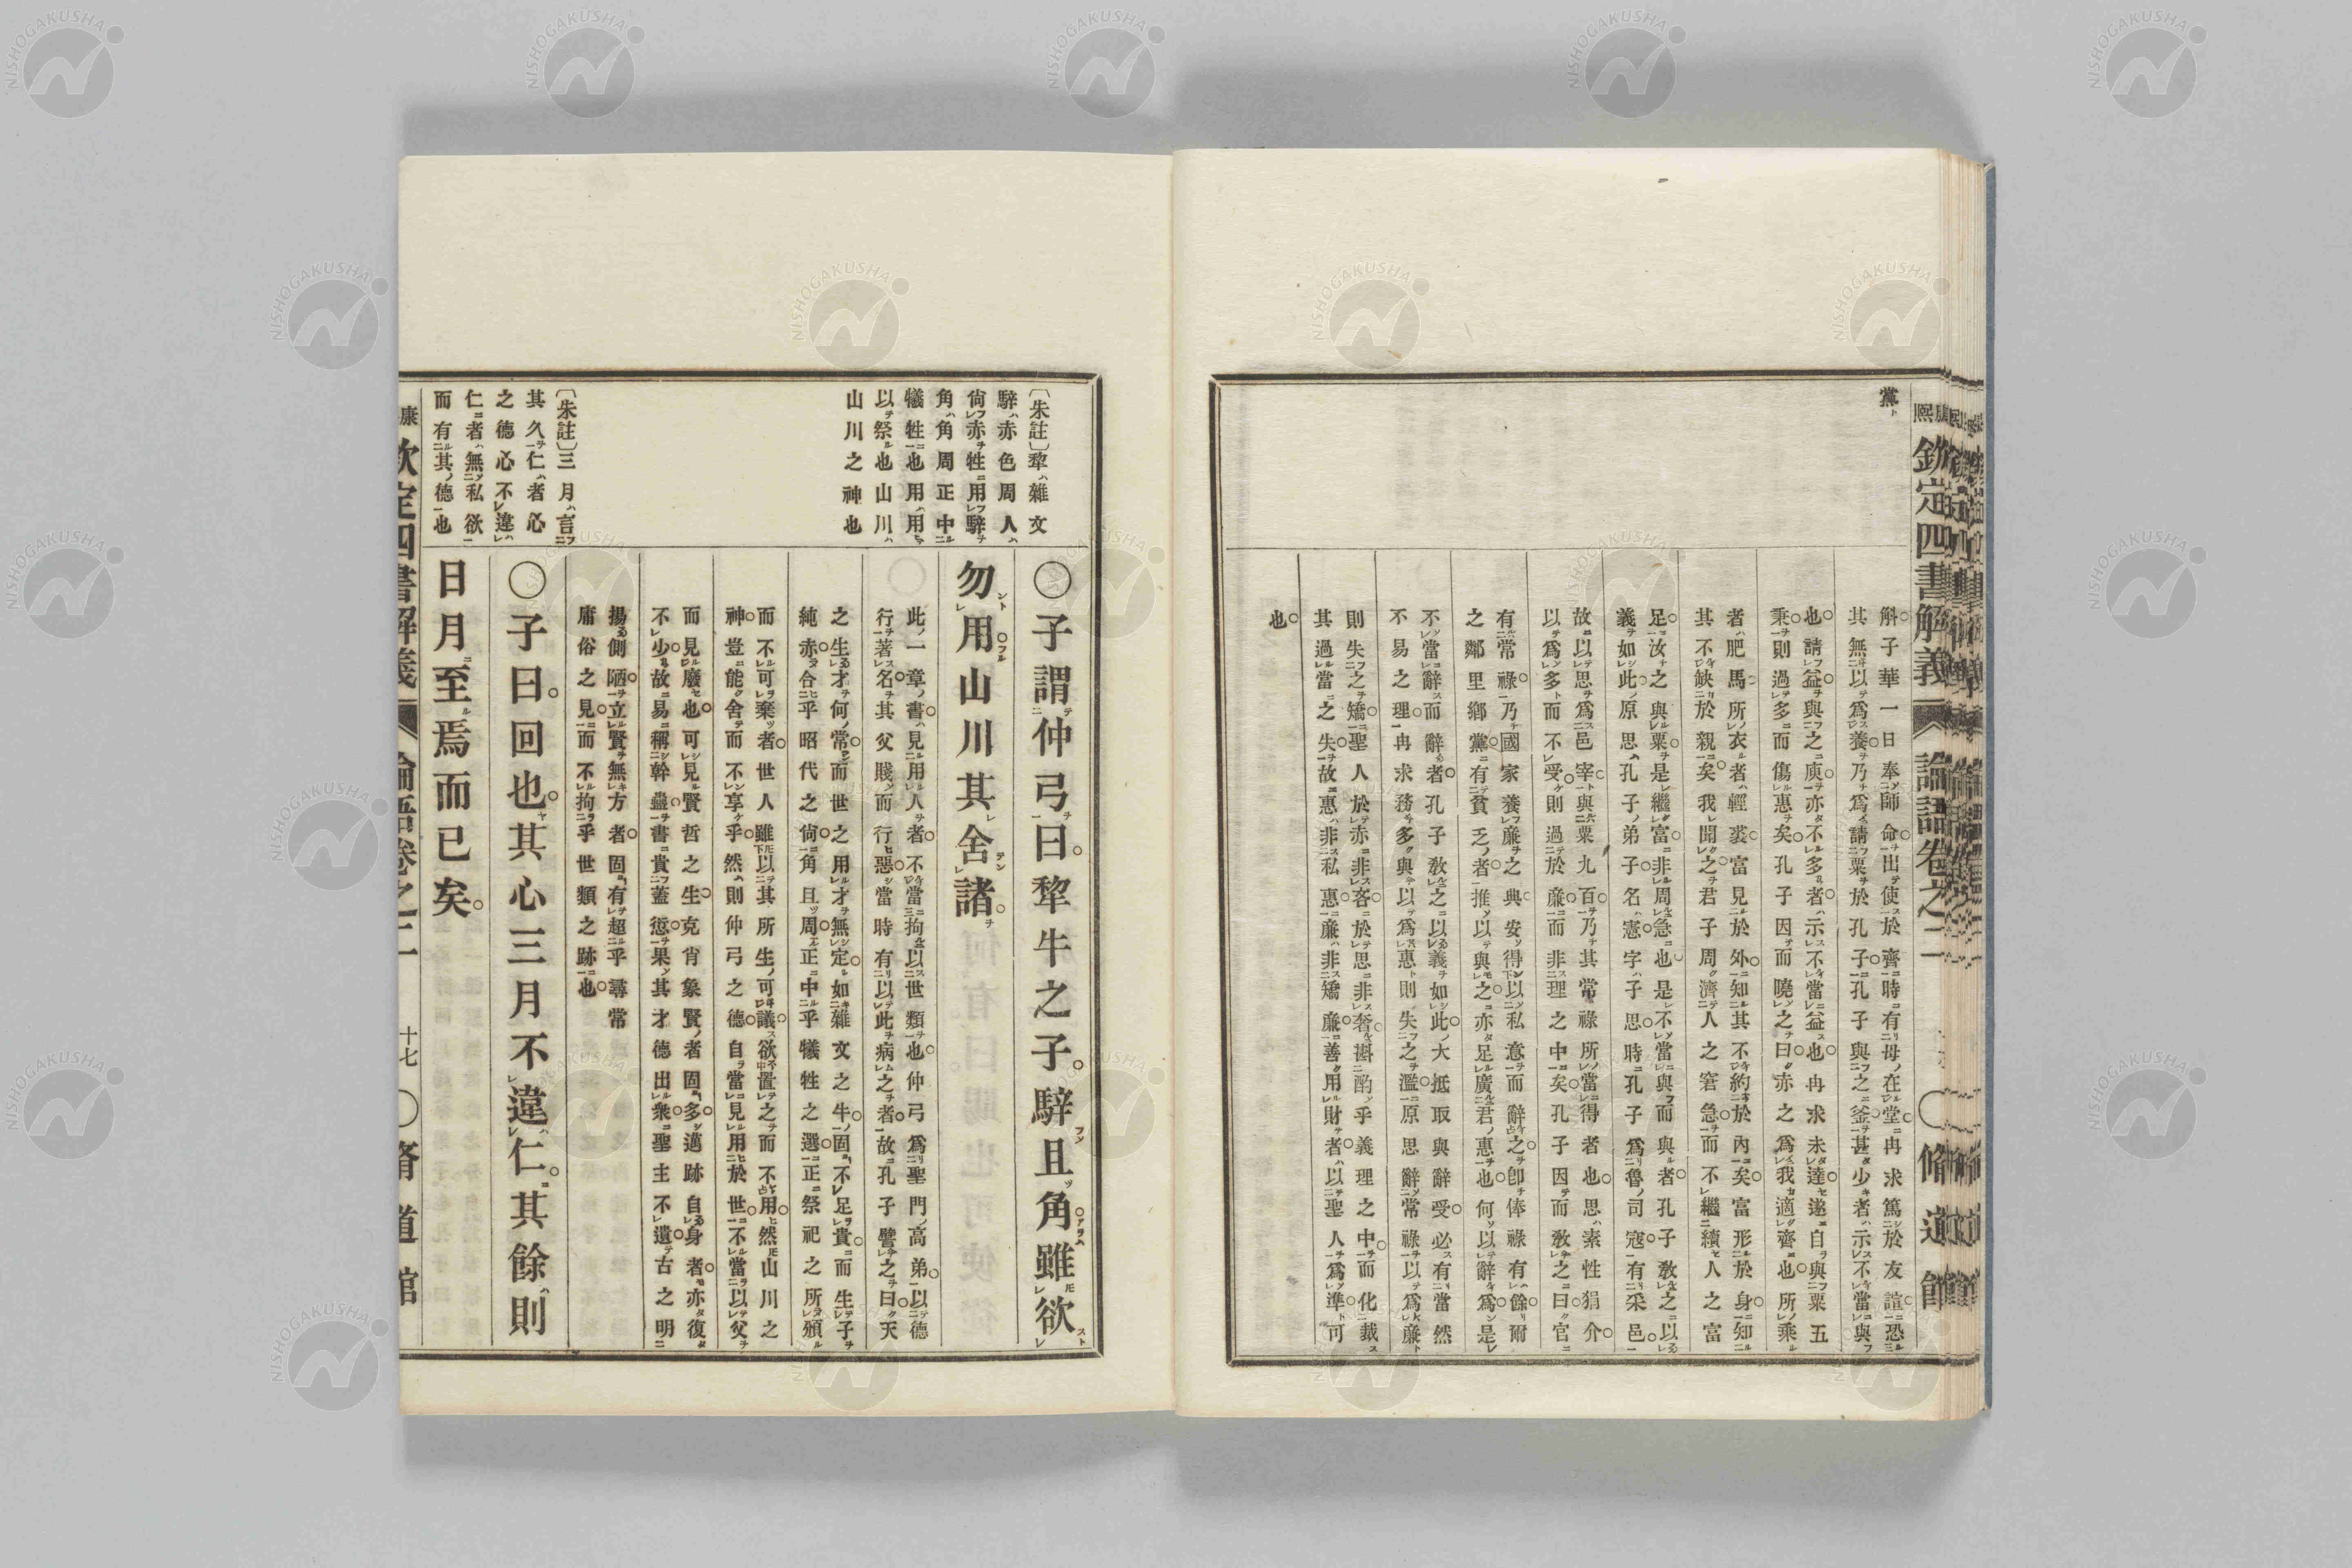 黨ト
康熙 欽定四書解義 論語卷之二 〇脩道館
斛子華一日奉師命出使於齊時有母在堂冉求篤於友誼恐
其無以爲養乃爲請粟於孔子孔子與之釜甚少者示不當與
也請益與之庾亦不多者示不當益也冉求未達遂自與粟五
秉則過多而傷惠矣孔子因而曉之曰赤之爲我適齊也所乘
者肥馬所衣者輕裘富見於外知其不約於內矣富形於身知
其不缺於親矣我聞之君子周濟人之窘急而不繼續人之富
足汝之與粟是繼富非周急也是不當與而與者孔子敎之以
義如此原思孔子弟子名憲字子思時孔子爲魯司寇有采邑
故以思爲邑宰與粟九百乃其常祿所當得者也思素性狷介
以爲多而不受則過於廉而非理之中矣孔子因而敎之曰官
有常祿乃國家養廉之典安得以私意而辭之卽俸祿有餘爾
之鄰里鄕黨有貧乏者推以與之亦足廣君惠也何以辭爲是
不當辭而辭者孔子敎之以義如此大抵取與辭受必有當然
不易之理冉求務多與以爲惠則失之濫原思辭常祿以爲廉
則失之矯聖人於赤非吝於思非奢斟酌乎義理之中而化裁
其過當之失故惠非私惠廉非矯廉善用財者以聖人爲準可
也
〔朱註〕犂雜文
騂赤色周人
尙赤牲用騂
角角周正中
犧牲也用用
以祭也山川
山川之神也
〇子謂仲弓曰犂牛之子騂且角雖欲
勿用山川其舍諸
此一章書見用人者不當拘以世類也仲弓爲聖門高弟以德
行著名其父賤而行惡當時有以此病之者故孔子譬之曰天
之生才何常而世之用才無定如雜文之牛固不足貴而生子
純赤合乎昭代之尙角且周正中乎犧牲之選正祭祀之所須
而不可棄者世人雖以其所生可議欲置之而不用然山川之
神豈能舍而不享乎然則仲弓之德自當見用於世不當以父
而見廢也可見賢哲之生克肖象賢者固多邁跡自身者亦復
不少故易稱幹蠱書貴蓋愆果其才德出衆聖主不遺古之明
揚側陋立賢無方者固有超乎尋常
庸俗之見而不拘乎世類之跡也
〔朱註〕三月言
其久仁者心
之德心不違
仁者無私欲
而有其德也
〇子曰回也其心三月不違仁其餘則
日月至焉而已矣
康 欽定四書解義 論語卷之二 十七 〇脩道館